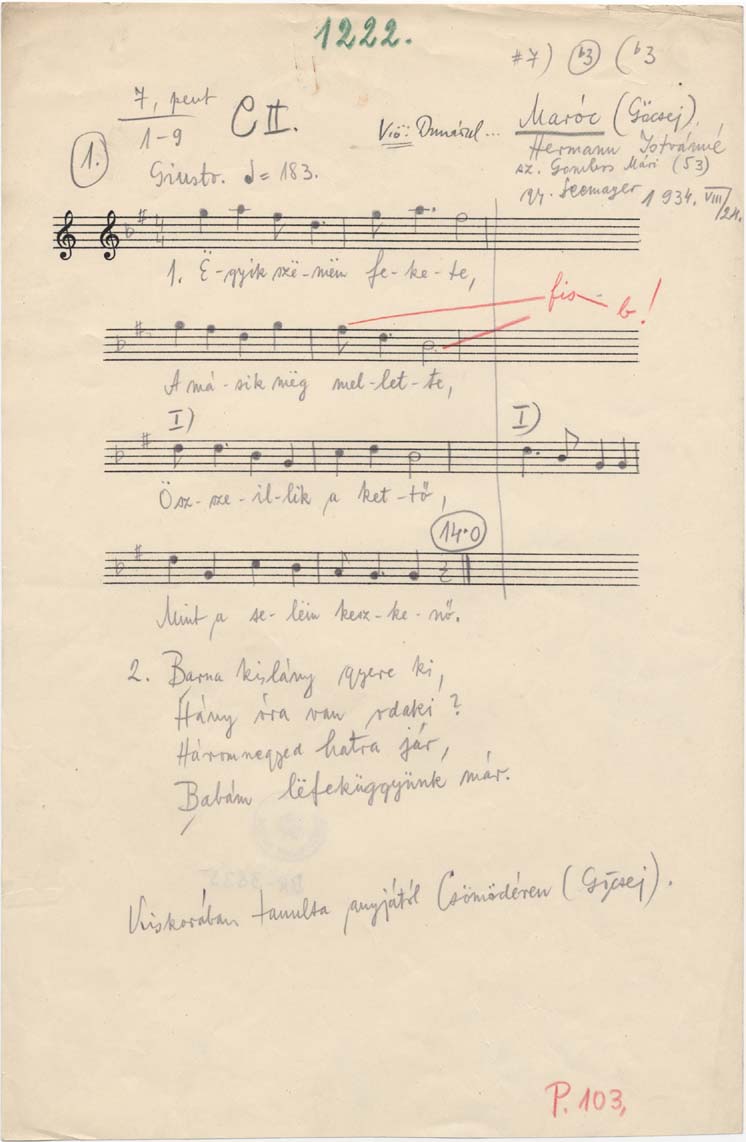 1222.
#7) (b3) (b3
7, pent
1-9
C II.
Við: Dunáról...
Maróc (Göcsej).
Hermann Istvánné
sz. Gombos Mári (53)
gy. Seemayer 1934. VIII/24.
1.
Giusto. = 183.
1. Ë-gyik szë-mëm fe-ke-te,
fis - b!
A má-sik mëg mel-let-te,
I) I)
Ösz-sze-il-lik a ket-tő,
14·0
Mint a se-lëm kesz-ke-nő.
2. Barna kislány gyere ki,
Hány óra van odaki?
Háromnegyed hatra jár,
Babám lëfeküggyünk már.
Kiskorában tanulta anyjától Csömödéren (Göcsej).
P. 103,